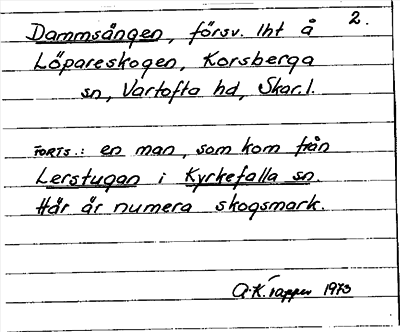 2.
Dammsången, försv. lht å
Löpareskogen, Korsberga
sn, Vartofta hd, Skar.l.
FORTS.: en man, som kom från
Lerstugan i Kyrkefalla sn.
Här är numera skogsmark.
A-K. 1973